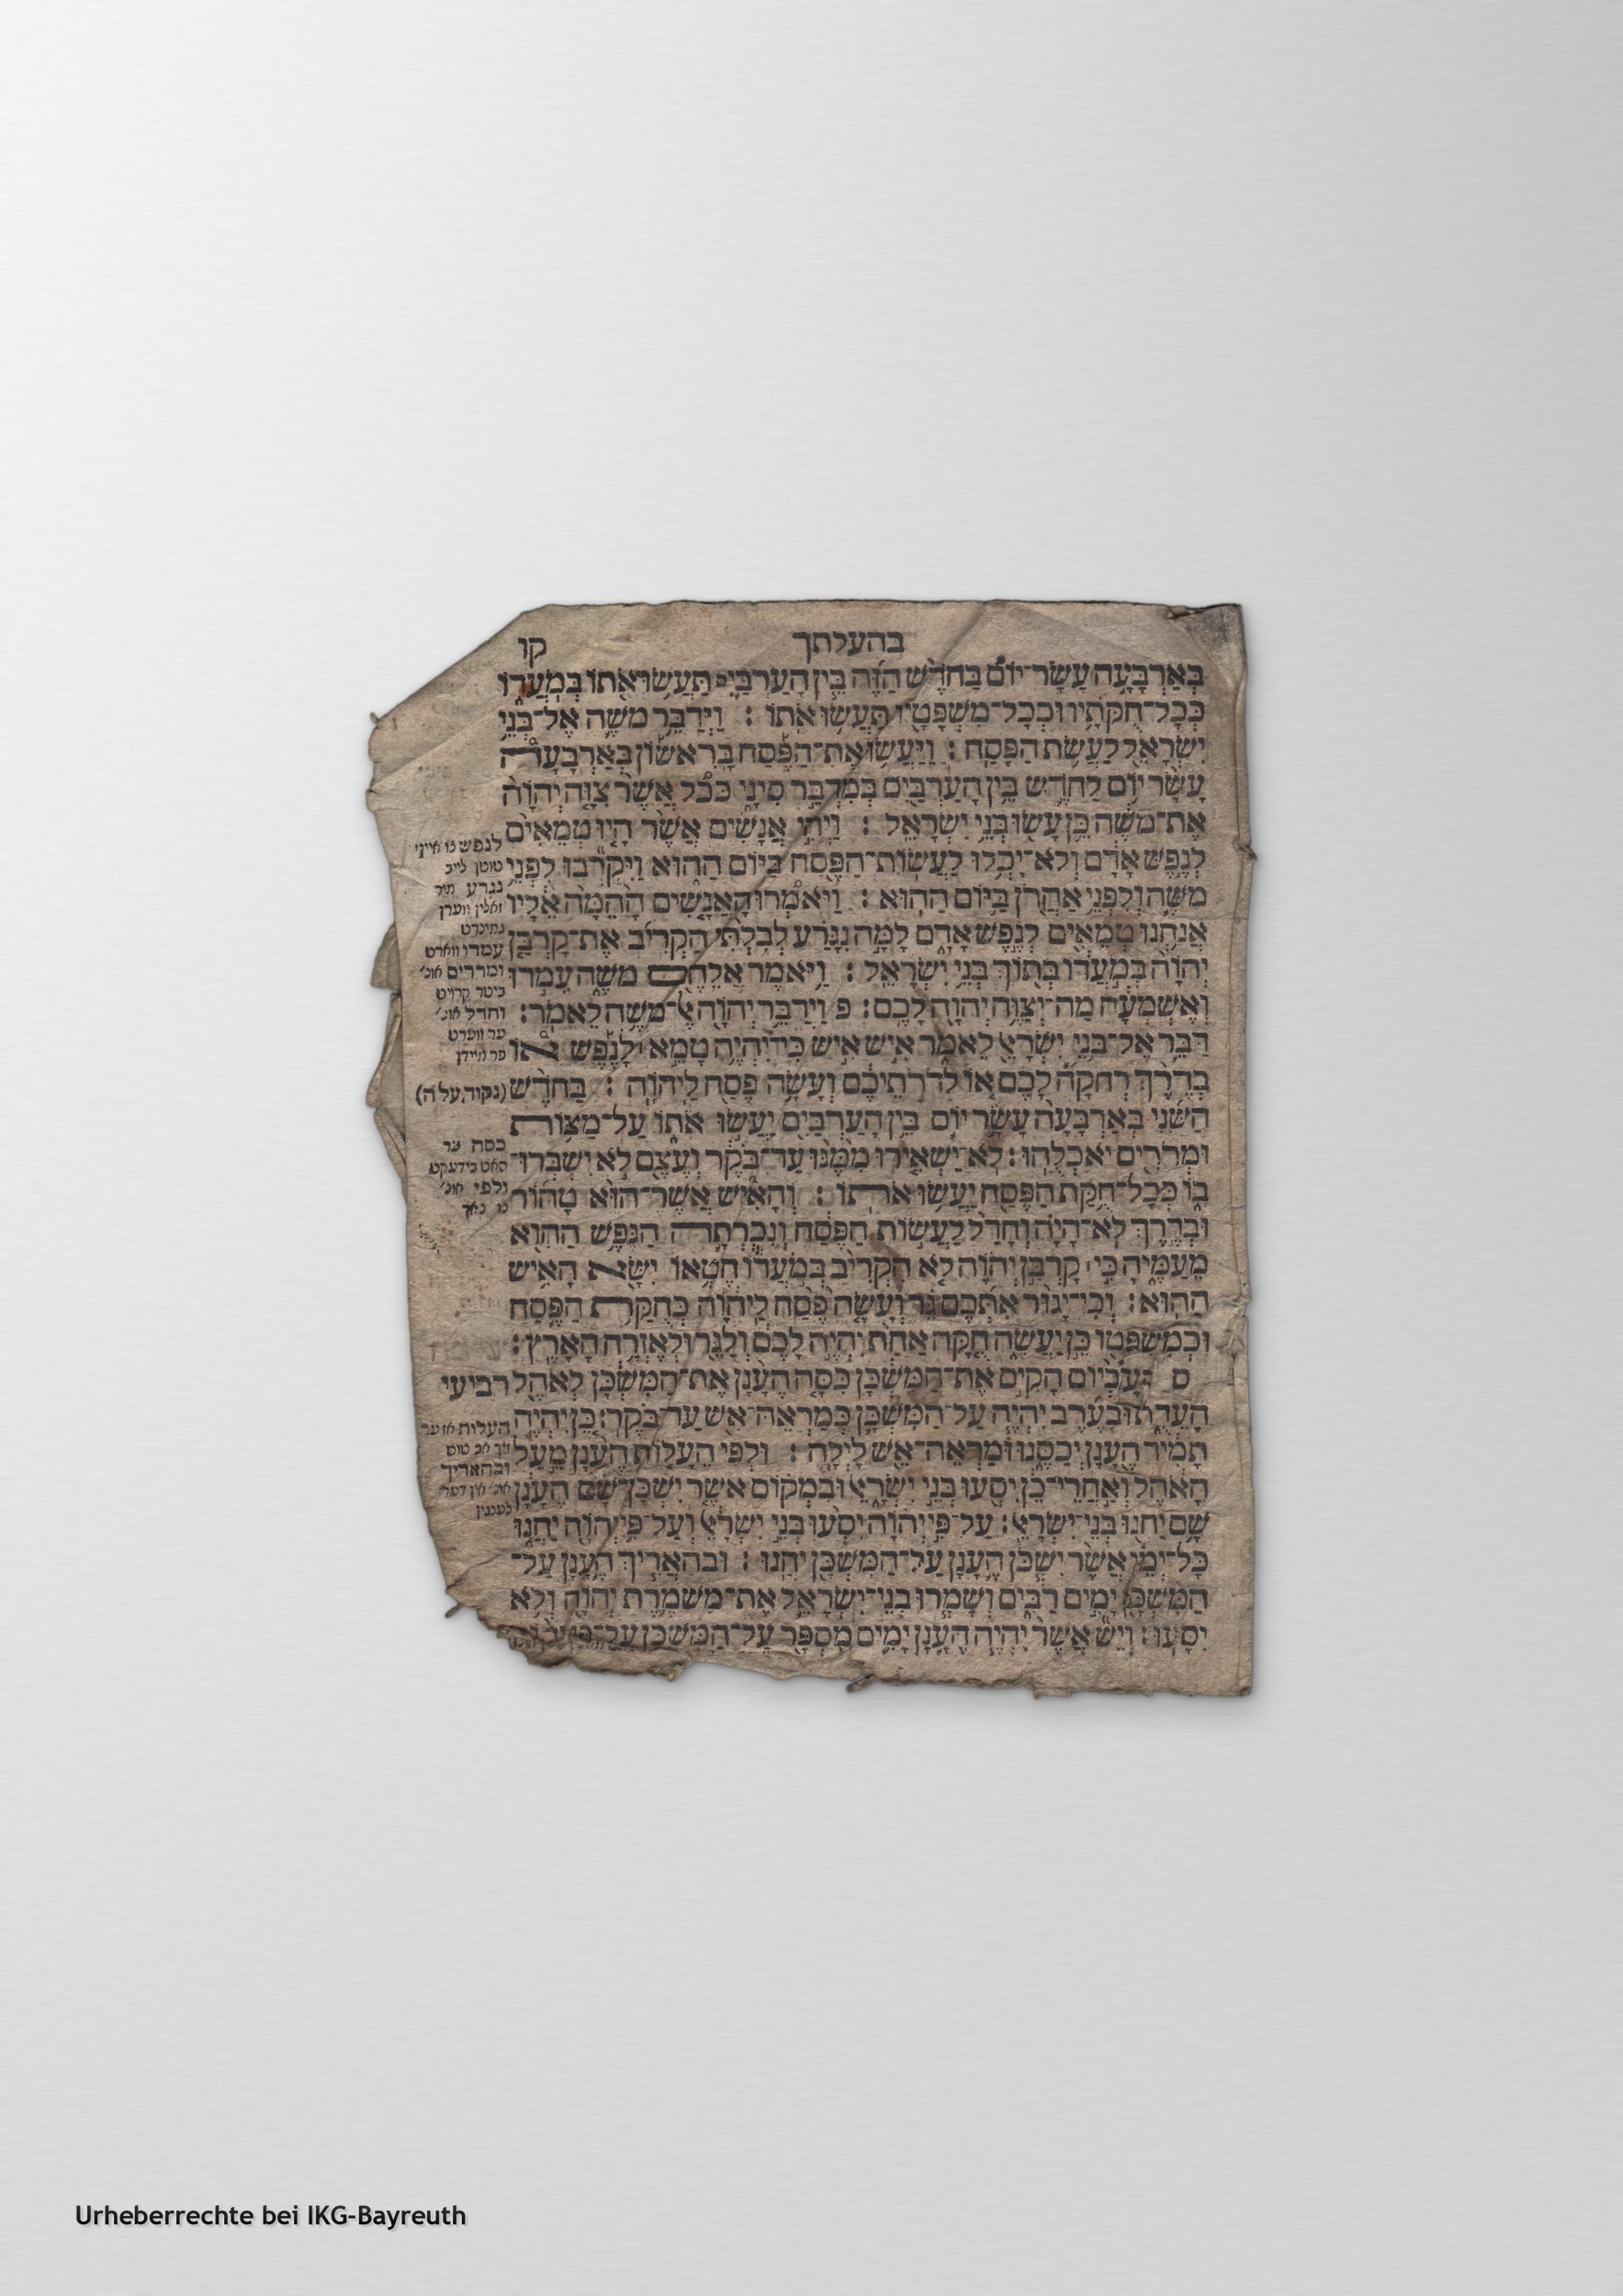 בהעלתך קו
בְּאַרְבָּעָה עָשָׂר־יוֹם בַּחֹדֶשׁ הַזֶּה בֵּין הָעַרְבַּיִם תַּעֲשׂוּ אֹתוֹ בְּמֹעֲדוֹ
כְּכָל־חֻקֹּתָיו וּכְכָל־מִשְׁפָּטָיו תַּעֲשׂוּ אֹתוֹ : וַיְדַבֵּר מֹשֶׁה אֶל־בְּנֵי
יִשְׂרָאֵל לַעֲשֹׂת הַפָּסַח : וַיַּעֲשׂוּ אֶת־הַפֶּסַח בָּרִאשׁוֹן בְּאַרְבָּעָה
עָשָׂר יוֹם לַחֹדֶשׁ בֵּין הָעַרְבַּיִם בְּמִדְבַּר סִינָי כְּכֹל אֲשֶׁר צִוָּה יְהוָֹה
אֶת־מֹשֶׁה כֵּן עָשׂוּ בְּנֵי יִשְׂרָאֵל : וַיְהִי אֲנָשִׁים אֲשֶׁר הָיוּ טְמֵאִים
לְנֶפֶשׁ אָדָם וְלֹא־יָכְלוּ לַעֲשׂוֹת־הַפֶּסַח בַּיּוֹם הַהוּא וַיִּקְרְבוּ לִפְנֵי
מֹשֶׁה וְלִפְנֵי אַהֲרֹן בַּיּוֹם הַהוּא : וַיֹּאמְרוּ הָאֲנָשִׁים הָהֵמָּה אֵלָיו
אֲנַחְנוּ טְמֵאִים לְנֶפֶשׁ אָדָם לָמָּה נִגָּרַע לְבִלְתִּי הַקְרִיב אֶת־קָרְבַּן
יְהוָֹה בְּמֹעֲדוֹ בְּתוֹךְ בְּנֵי יִשְׂרָאֵל : וַיֹּאמֶר אֲלֵהֶם מֹשֶׁה עִמְדוּ
וְאֶשְׁמְעָה מַה־יְצַוֶּה יְהוָֹה לָכֶם : פ וַיְדַבֵּר יְהוָֹה אֶל־מֹשֶׁה לֵּאמֹר :
דַּבֵּר אֶל־בְּנֵי יִשְׂרָאֵל לֵאמֹר אִישׁ אִישׁ כִּי־יִהְיֶה טָמֵא לָנֶפֶשׁ אוֹ
בְדֶרֶךְ רְחֹקָה לָכֶם אוֹ לְדֹרֹתֵיכֶם וְעָשָׂה פֶסַח לַיהוָֹה : בַּחֹדֶשׁ
הַשֵּׁנִי בְּאַרְבָּעָה עָשָׂר יוֹם בֵּין הָעַרְבַּיִם יַעֲשׂוּ אֹתוֹ עַל־מַצּוֹת
וּמְרֹרִים יֹאכְלֻהוּ : לֹא־יַשְׁאִירוּ מִמֶּנּוּ עַד־בֹּקֶר וְעֶצֶם לֹא יִשְׁבְּרוּ־
בוֹ כְּכָל־חֻקַּת הַפֶּסַח יַעֲשׂוּ אֹתוֹ : וְהָאִישׁ אֲשֶׁר־הוּא טָהוֹר
וּבְדֶרֶךְ לֹא־הָיָה וְחָדַל לַעֲשׂוֹת הַפֶּסַח וְנִכְרְתָה הַנֶּפֶשׁ הַהִוא
מֵעַמֶּיהָ כִּי קָרְבַּן יְהוָֹה לֹא הִקְרִיב בְּמֹעֲדוֹ חֶטְאוֹ יִשָּׂא הָאִישׁ
הַהוּא : וְכִי־יָגוּר אִתְּכֶם גֵּר וְעָשָׂה פֶסַח לַיהוָֹה כְּחֻקַּת הַפֶּסַח
וּכְמִשְׁפָּטוֹ כֵּן יַעֲשֶׂה חֻקָּה אַחַת יִהְיֶה לָכֶם וְלַגֵּר וּלְאֶזְרַח הָאָרֶץ :
ס וּבְיוֹם הָקִים אֶת־הַמִּשְׁכָּן כִּסָּה הֶעָנָן אֶת־הַמִּשְׁכָּן לְאֹהֶל
הָעֵדֻת וּבָעֶרֶב יִהְיֶה עַל־הַמִּשְׁכָּן כְּמַרְאֵה־אֵשׁ עַד־בֹּקֶר : כֵּן יִהְיֶה
תָמִיד הֶעָנָן יְכַסֶּנּוּ וּמַרְאֵה־אֵשׁ לָיְלָה : וּלְפִי הֵעָלוֹת הֶעָנָן מֵעַל
הָאֹהֶל וְאַחֲרֵי־כֵן יִסְעוּ בְּנֵי יִשְׂרָאֵל וּבִמְקוֹם אֲשֶׁר יִשְׁכָּן־שָׁם הֶעָנָן
שָׁם יַחֲנוּ בְּנֵי־יִשְׂרָאֵל : עַל־פִּי יְהוָֹה יִסְעוּ בְּנֵי יִשְׂרָאֵל וְעַל־פִּי יְהוָֹה יַחֲנוּ
כָּל־יְמֵי אֲשֶׁר יִשְׁכֹּן הֶעָנָן עַל־הַמִּשְׁכָּן יַחֲנוּ : וּבְהַאֲרִיךְ הֶעָנָן עַל־
הַמִּשְׁכָּן יָמִים רַבִּים וְשָׁמְרוּ בְנֵי־יִשְׂרָאֵל אֶת־מִשְׁמֶרֶת יְהוָֹה וְלֹא
יִסָּעוּ : וְיֵשׁ אֲשֶׁר יִהְיֶה הֶעָנָן יָמִים מִסְפָּר עַל־הַמִּשְׁכָּן עַל־פִּי
לנפש
טוטן לייב
נגרע
זאלין ווערן
גמינרט
עמדו ווארט
ומררים אונ'
ביטר קרויט
וחדל אונ'
ער ווערט
פר מיידן
(נקוד, על ה)
ולפי אונ'
רביעי
העלות
ובהאריך
Urheberrechte bei IKG-Bayreuth